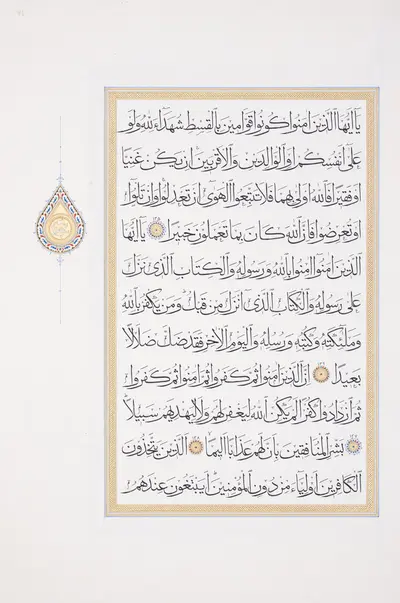 يا ايها الذين امنوا كونوا قوامين بالقسط شهداء لله ولو
على انفسكم او الوالدين والاقربين ان يكن غنيا
او فقيرا فالله اولى بهما فلا تتبعوا الهوى ان تعدلوا وان تلوا
او تعرضوا فان الله كان بما تعملون خبيرا يا ايها
الذين امنوا امنوا بالله ورسوله والكتاب الذى نزل
على رسوله والكتاب الذى انزل من قبل ومن يكفر بالله
وملئكته وكتبه ورسله واليوم الاخر فقد ضل ضلالا
بعيدا ان الذين امنوا ثم كفروا ثم امنوا ثم كفروا
ثم ازدادوا كفرا لم يكن الله ليغفر لهم ولا ليهديهم سبيلا
بشر المنافقين بان لهم عذابا اليما الذين يتخذون
الكافرين اولياء من دون المؤمنين ايبتغون عندهم